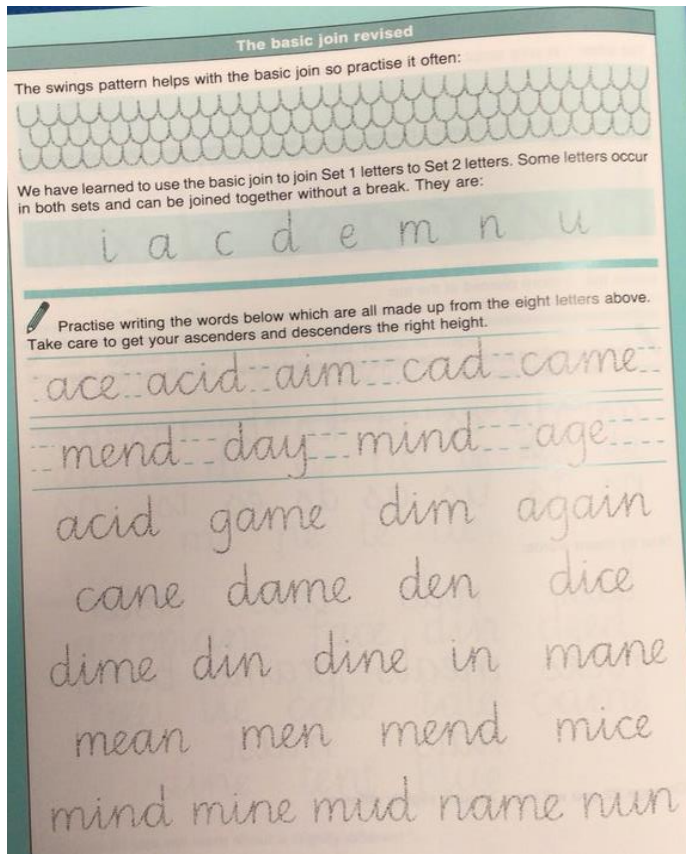 The basic join revised
The swings pattern helps with the basic join so practise it often:
We have learned to use the basic join to join Set 1 letters to Set 2 letters. Some letters occur
in both sets and can be joined together without a break. They are:
i a c d e m n u
Practise writing the words below which are all made up from the eight letters above.
Take care to get your ascenders and descenders the right height.
ace acid aim cad came
mend day mind age
acid game dim again
cane dame den dice
dime din dine in mane
mean men mend mice
mind mine mud name nun